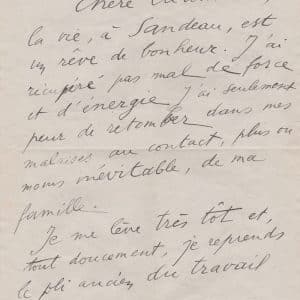 Chère
la vie, à Sandeau, est
un rêve de bonheur. J'ai
récupéré pas mal de force
et d'énergie. J'ai seulement
peur de retomber dans mes
malaises au contact, plus ou
moins inévitable, de ma
famille.
Je me lève très tôt et,
tout doucement, je reprends
le pli ancien du travail